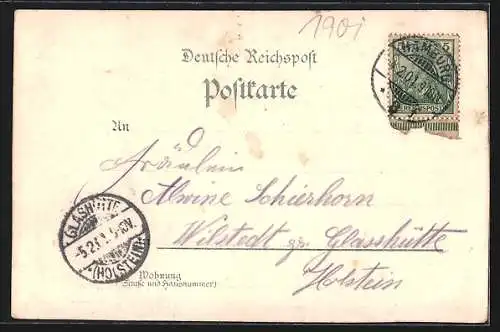 1901
Deutsche Reichspost
Postkarte
5
HAMBURG
REICHSPOST
An
Fräulein
Alwine Schierhorn
Wilstedt pr. Glasshütte
Holstein
GLASHÜTTE
-5.2.01
(HOLSTEIN)
Wohnung
(Straße und Hausnummer)